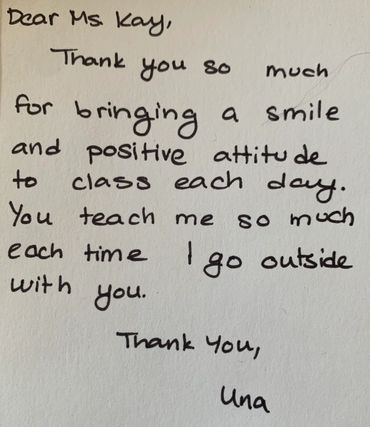 Dear Ms. Kay,
Thank you so much
for bringing a smile
and positive attitude
to class each day.
You teach me so much
each time I go outside
with you.
Thank You,
Una